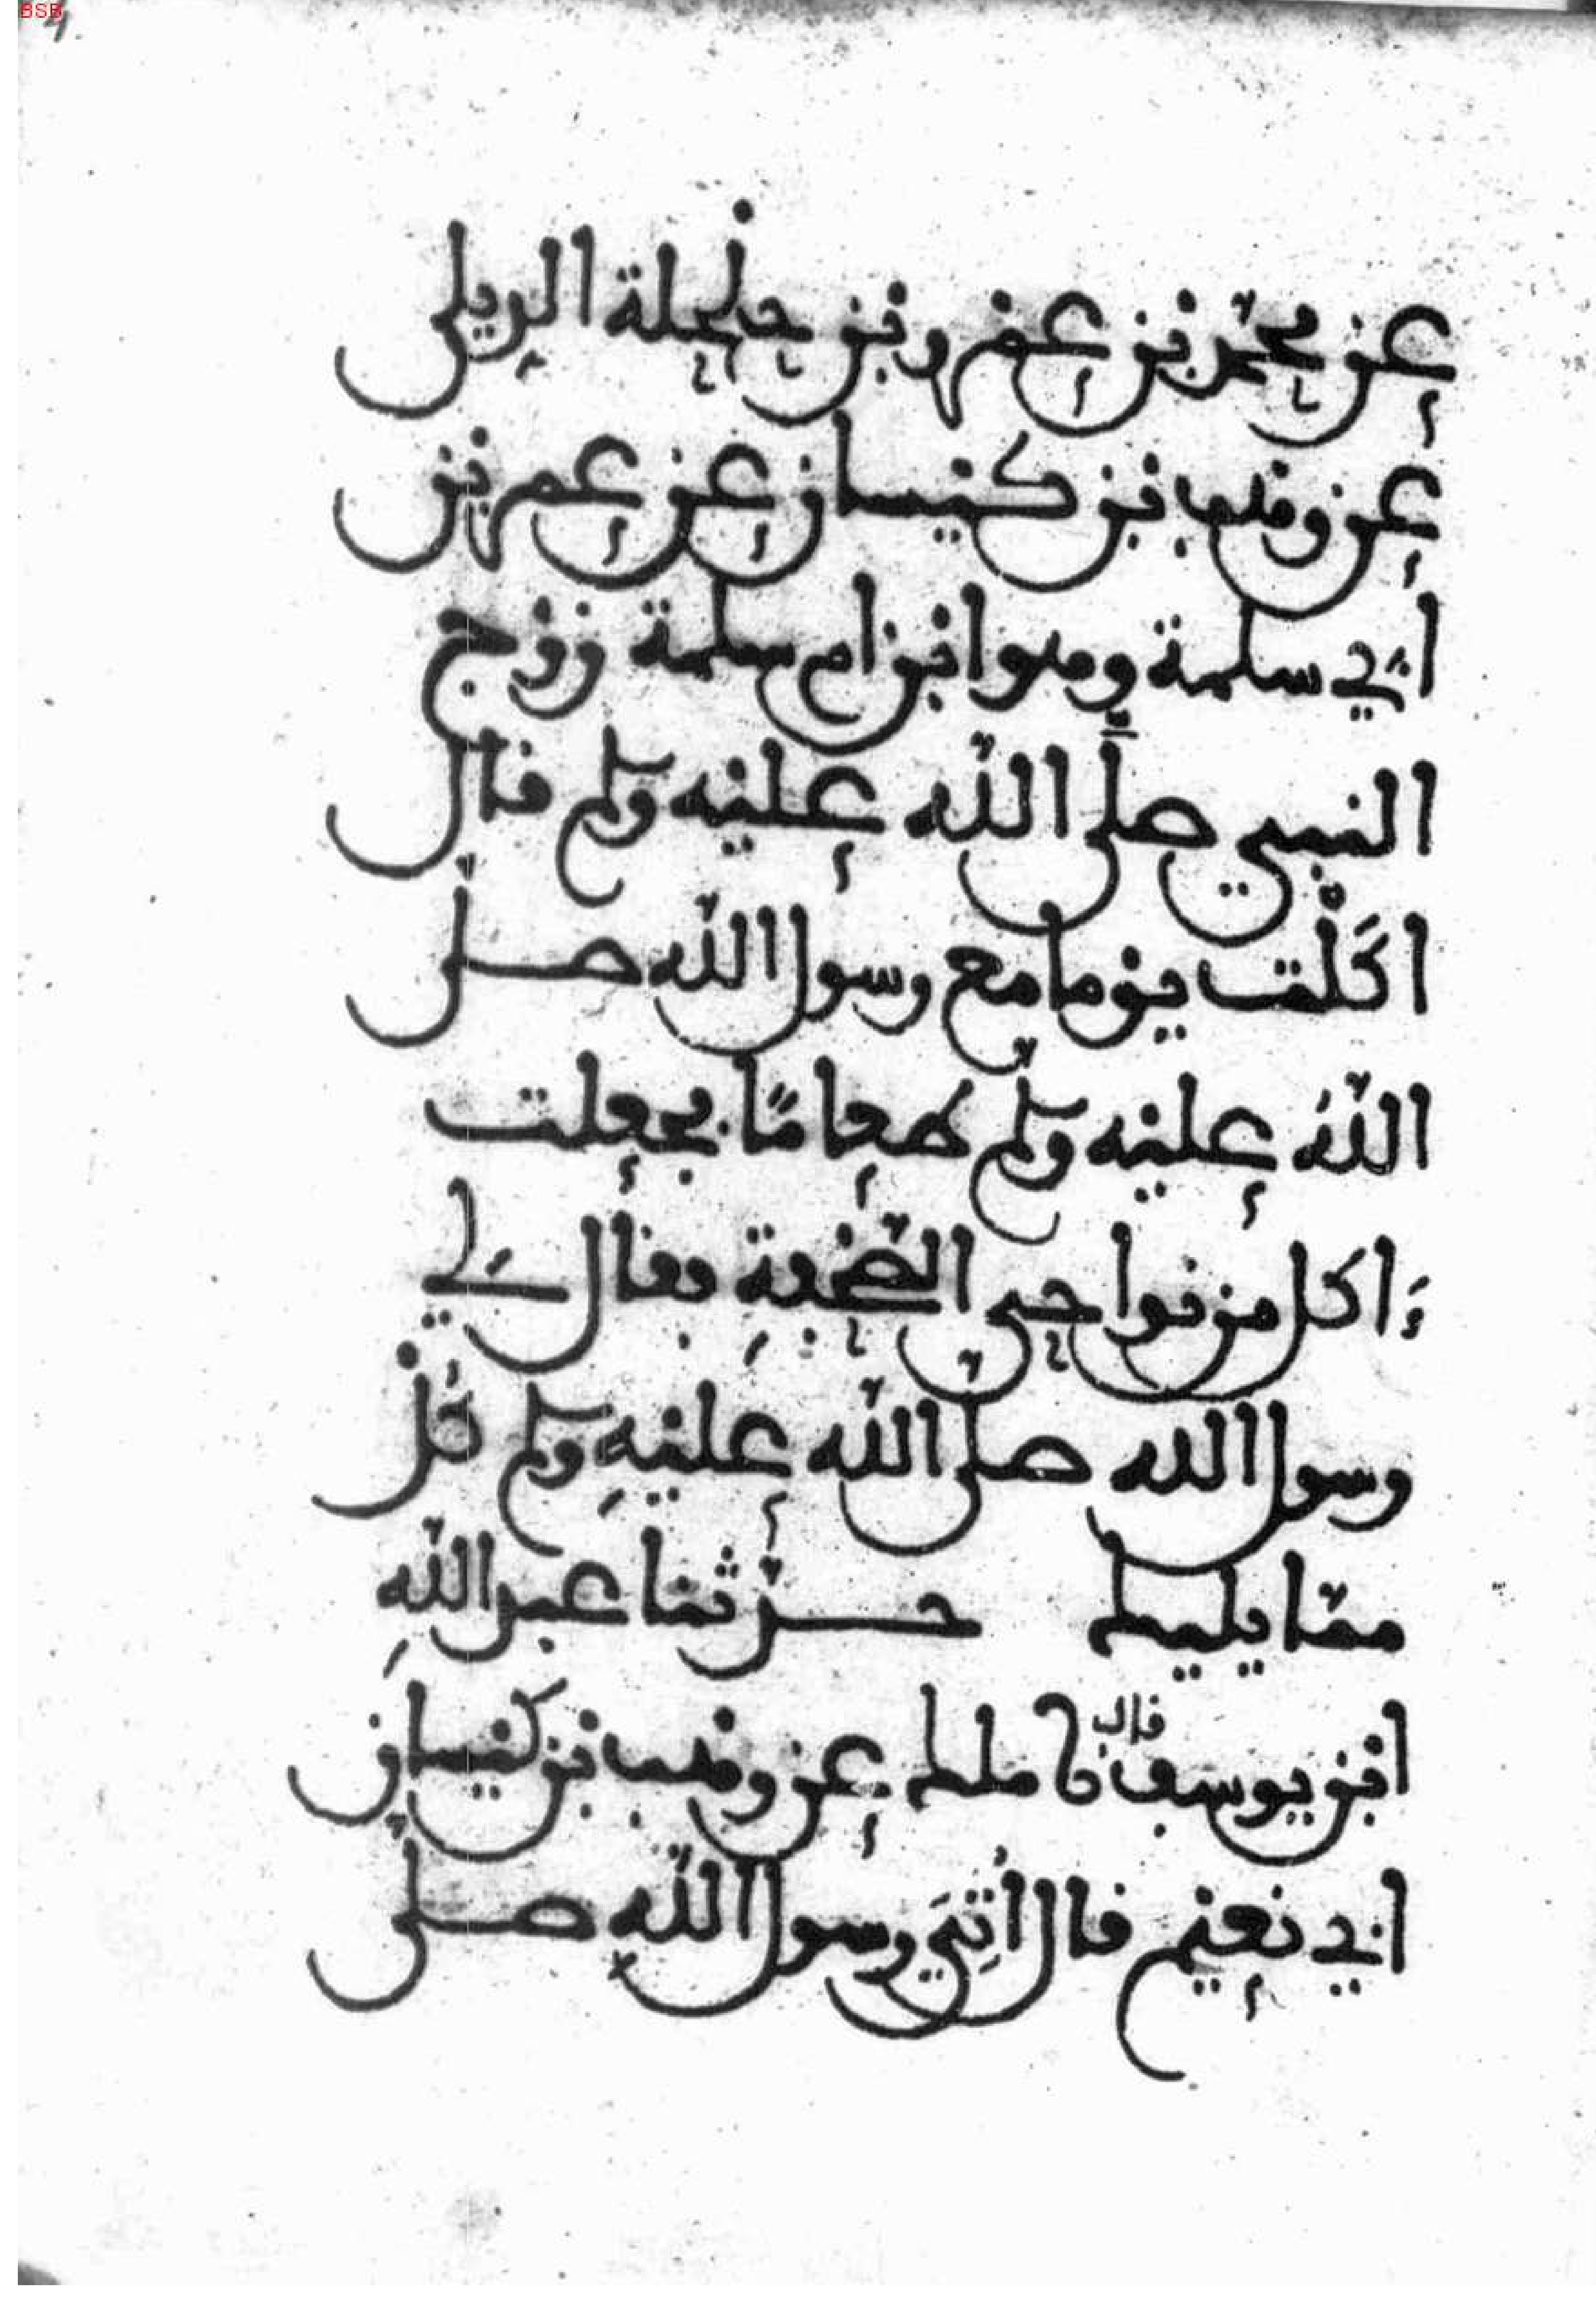 BSB
4.
عن محمد بن عمرو بن حلحلة الديلي
عن وهب بن كيسان عن عمر بن
أبي سلمة وهو ابن ام سلمة زوج
النبي صلى الله عليه وسلم قال
اكلْت يوما مع رسول الله صلى
الله عليه وسلم طعامًا فجعلت
ءاكل من نواحي الصّحْفةِ فقال لي
رسول الله صلى الله عليهِ وسلم كُلْ
ممّا يليط حدّثنا عبد اللهِ
ابن يوسف قال نا ملط عن وهب بن كيسان
ابي نعيم قال اُتِيَ رسول الله صلى